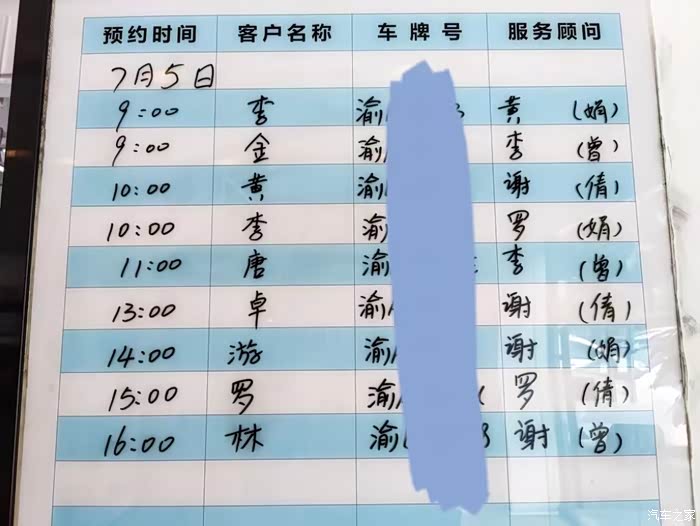 预约时间 客户名称 车牌号 服务顾问
7月5日
9:00 李 渝 黄 (娟)
9:00 金 渝 李 (曾)
10:00 黄 渝 谢 (倩)
10:00 李 渝 罗 (娟)
11:00 唐 渝 李 (曾)
13:00 卓 渝 谢 (倩)
14:00 游 渝 谢 (娟)
15:00 罗 渝 罗 (倩)
16:00 林 渝 谢 (曾)
汽车之家